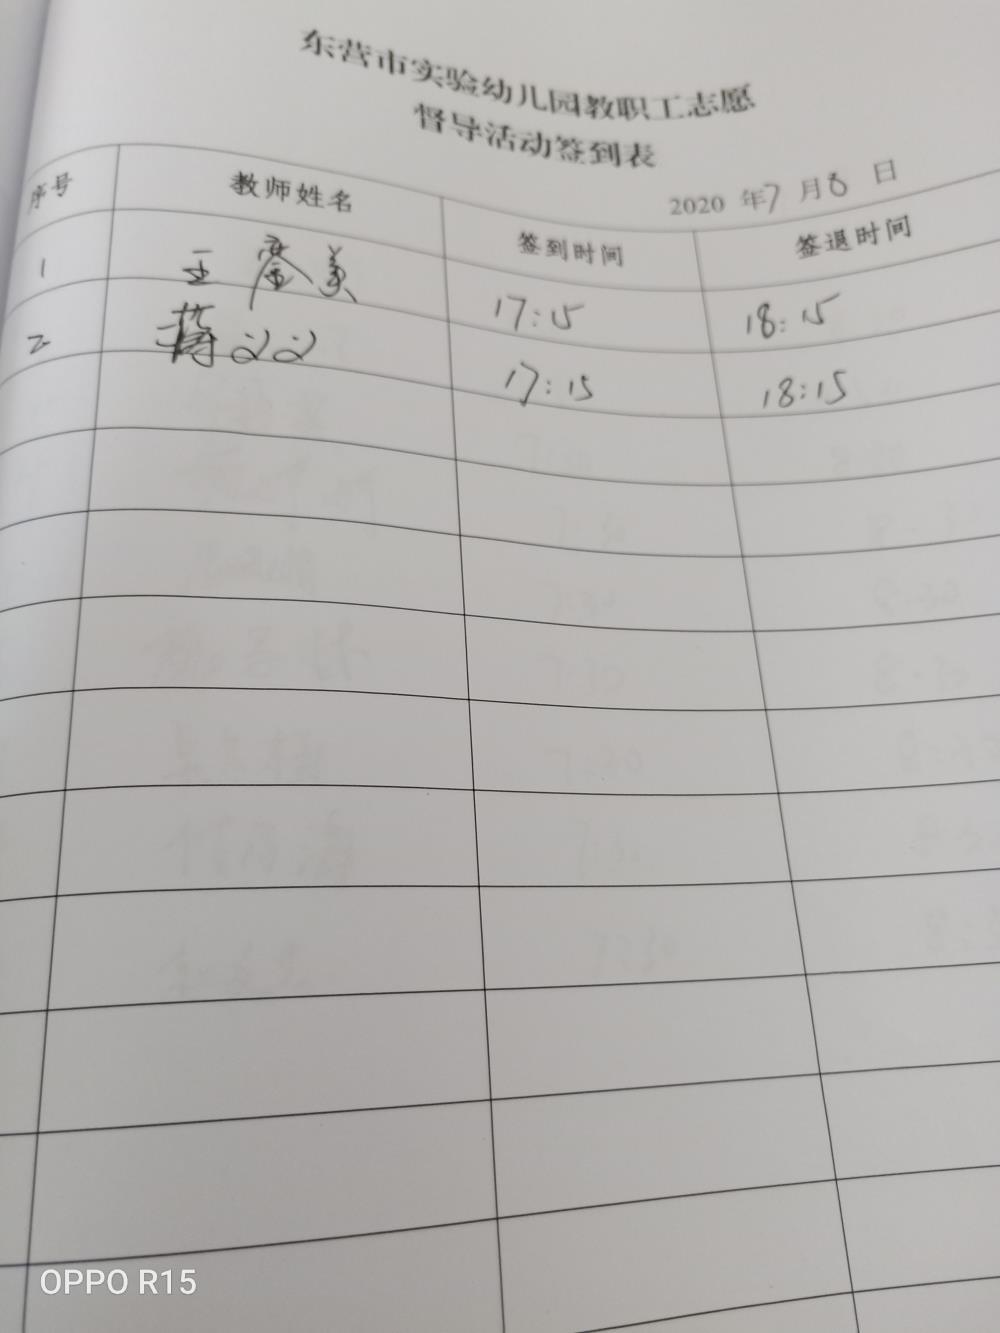 东营市实验幼儿园教职工志愿
督导活动签到表
2020 年7月8日
序号 教师姓名 签到时间 签退时间
1 王 美 17:15 18:15
2 蒋 17:15 18:15
OPPO R15